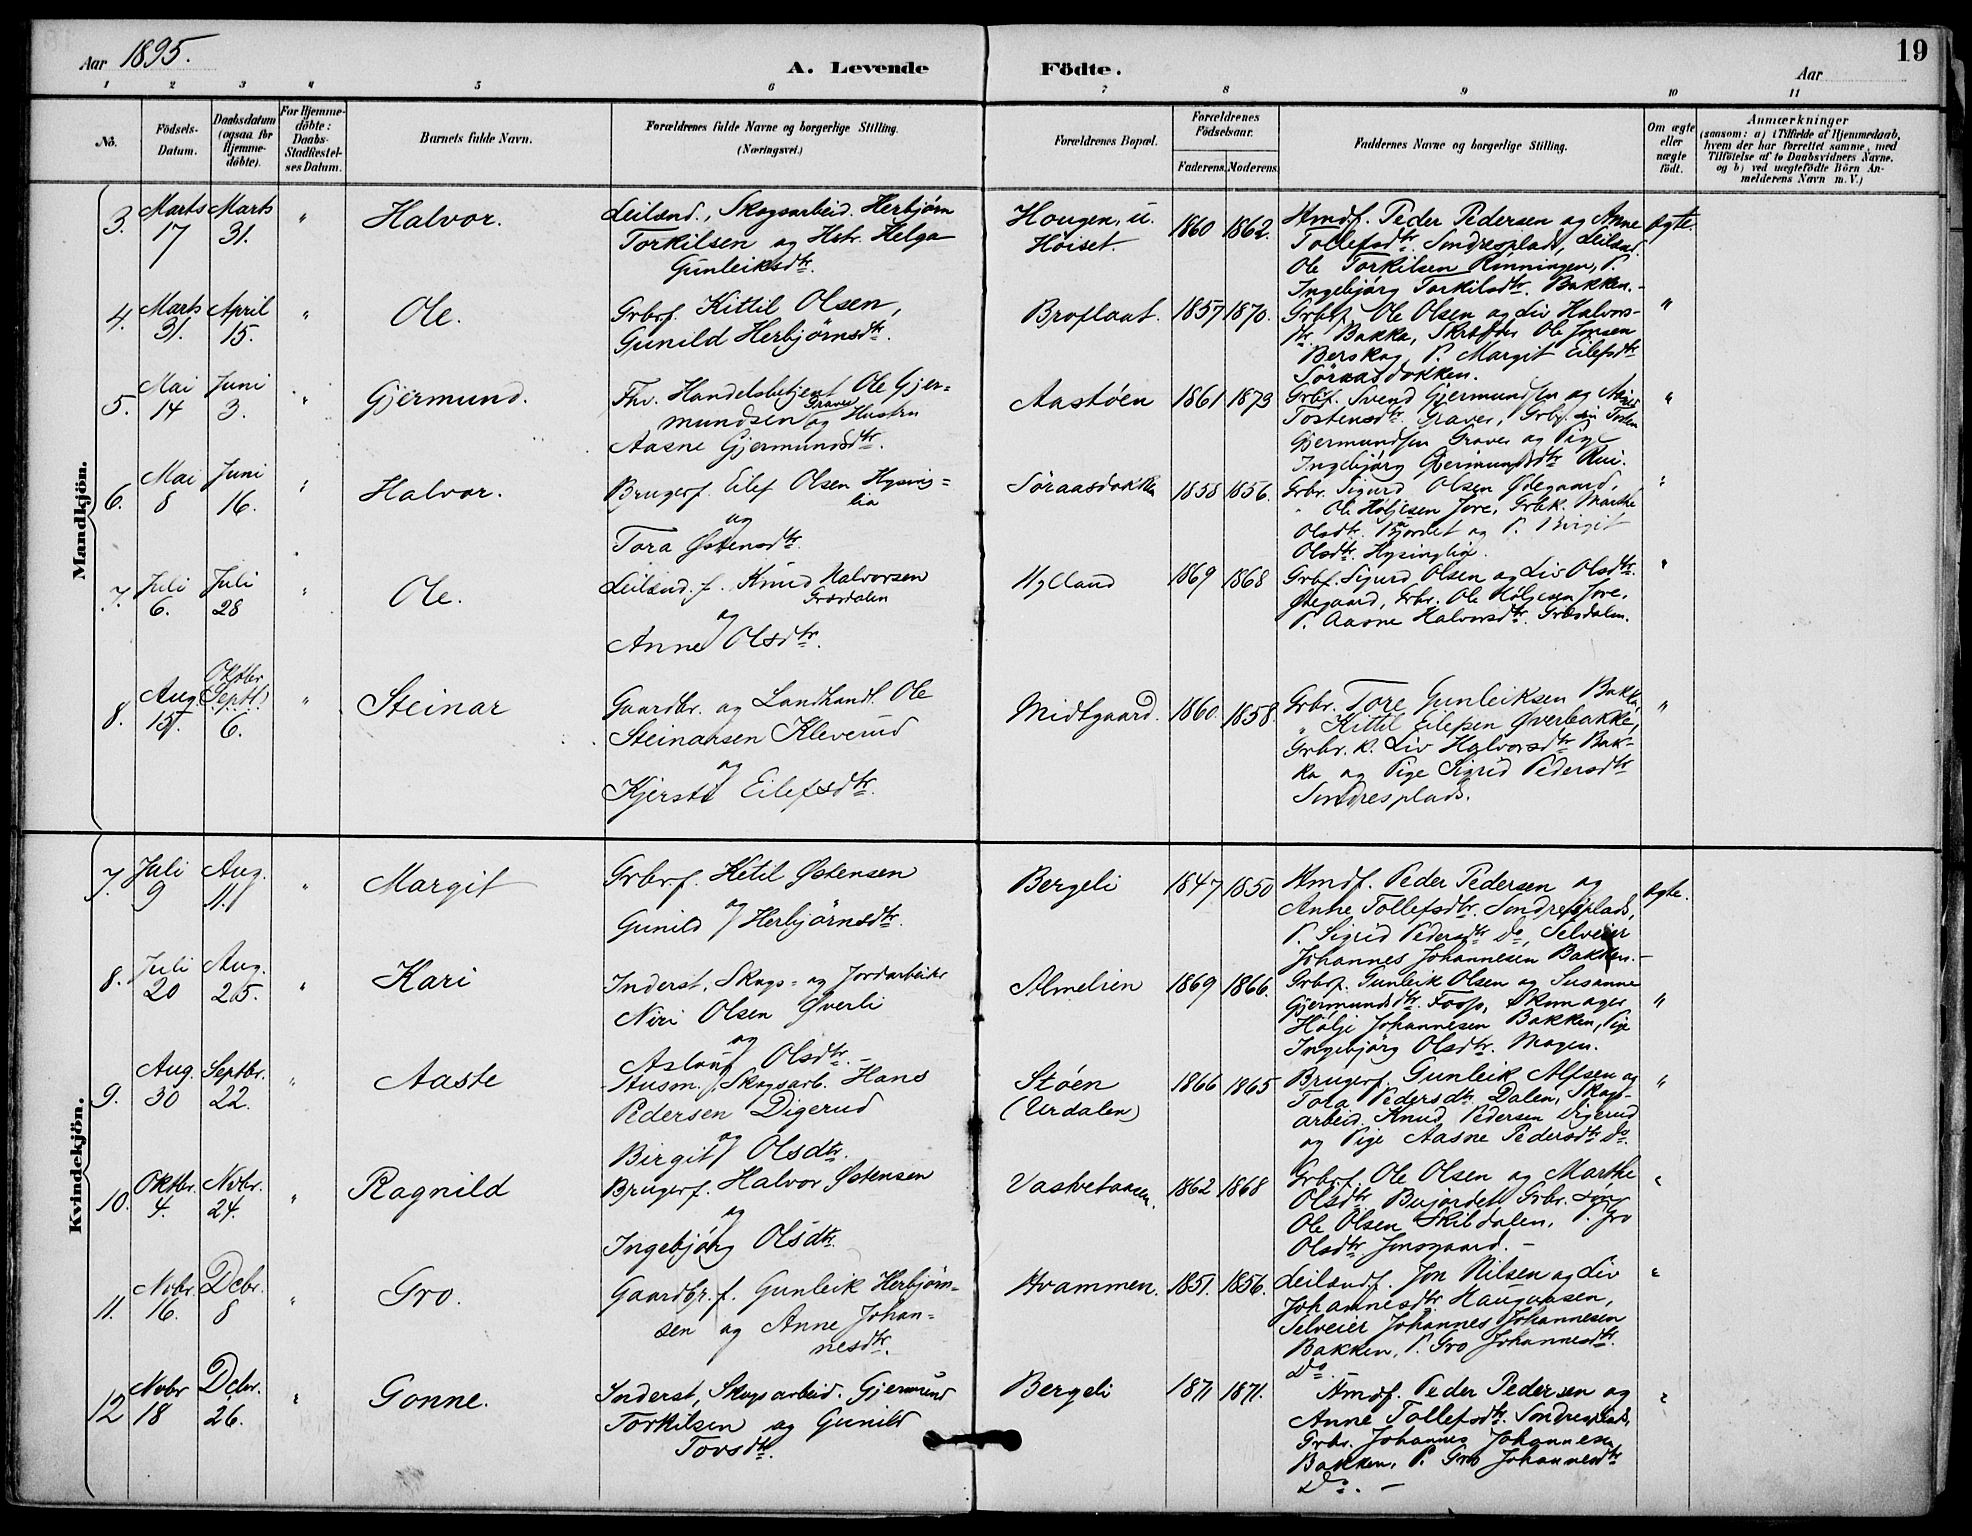 Aar 1895.
A. Levende Födte.
Aar
19
1 2 3 4 5 6 7 8 9 10 11
No.
Födsels-
Datum.
Daabsdatum
(ogsaa for
Hjemme-
döbte).
For Hjemme-
döbte:
Daabs-
Stadfæstel-
ses Datum.
Barnets fulde Navn.
Forældrenes fulde Navne og borgerlige Stilling.
(Næringsvei.)
Forældrenes Bopæl.
Forældrenes
Födselsaar.
Faderens. Moderens.
Faddernes Navne og borgerlige Stilling.
Om ægte
eller
uægte
født.
Anmærkninger
(saasom: a) i Tilfælde af Hjemmedaab,
hvem der har forrettet samme, med
Tilföielse af to Daabsvidners Navne.
og b) ved uægtefödte Börn An-
melderens Navn m. V.)
Mandkjön.
3. Marts 17 Marts 31. " Halvor.
Leilænd., Skogsarbeid. Herbjørn
Torkilsen og Hstr. Helga
Gunleiksdtr.
Hougen, u.
Höiset.
1860 1862.
Hmdf. Peder Pedersen og Anne
Tollefsdtr. Sondresplads, Leilænd.
Ole Torkilsen Rönningen, P.
Ingebjörg Torkilsdtr. Bakken.-
Ægte.
4. Marts 31. April 15. " Ole.
Grbrf. Kittil Olsen,
Gunild Herbjörnsdtr.
Broflaat. 1857 1870.
Grbf. Ole Olsen og Liv Halvors-
dtr. Bakka, Ole Jonsen
Berskog, P. Margit Eilefsdtr
Söraasdokken.
"
5. Mai 14 Juni 3. " Gjermund.
Fhv. Handelsbetjent Ole Gjer-
mundsen Graver og Hustru
Aasne Gjermundsdtr.
Aastöen 1861 1873
Grbf. Svend Gjermundsen og
Tostensdtr. Graver, Grbr. Tosten
Gjermundsen Graver og Pige
Ingebjörg Gjermundsdtr Rui.
"
6. Mai 8 Juni 16. " Halvor.
Brugerf. Eilef Olsen Hysing=
lia
og
Tora Østensdtr.
Söraasdokken 1858 1856.
Grbr. Sigurd Olsen Ødegaard,
" Ole Höljesen Jore, Grbk. Marthe
Olsdtr. og P. Birgit
Olsdtr. Hysinglia.
"
7. Juli 6. Juli 28 " Ole.
Leilænd. f. Knud Halvorsen
Græsdalen
og
Anne Olsdtr.
Hylland 1869 1868
Grbf. Sigurd Olsen og Liv Olsdtr.
Ødegaard, Grbr. Ole Höljesen Jore,
P. Aasne Halvorsdtr. Græsdalen.
"
8. Aug. 15. Oktbr. (Septb.) 6. " Steinar
Gaardbr. og Landhandl. Ole
Steinarsen Kleverud
og
Kjersti Eilefsdtr.
Midtgaard. 1860. 1858.
Grbr. Tore Gunleiksen Bakka,
" Kittil Eilefsen Øverbakke,
Grbr. k. Liv Halvorsdtr Bak-
ka og Pige Sigrid Pedersdtr
Sondresplads.
"
Kvindekjön.
7. Juli 9 Aug. 11. " Margit
Grbr. f. Ketil Østensen
og
Gunild Herbjörnsdtr.
Bergeli 1847 1850
Hmdf. Peder Pedersen og
Anne Tollefsdtr. Sondresplads,
P. Sigrid Pedersdtr Do, Selveier
Johannes Johannesen Bakken.-
Ægte.
8. Juli 20 Aug. 25. " Kari
Inderst, Skogs- og Jordarbeider
Niri Olsen Øverli
og
Aslaug Olsdtr.-
Almelien 1869 1866.
Grbrf. Gunleik Olsen og Susanne
Gjermundsdtr. Foss, Skomager
Hölje Johannesen Bakken, Pige
Ingebjörg Olsdtr. Mogen.
"
9. Aug. 30 Septbr. 22. " Aaste
Husm. f. Skogsarb. Hans
Pedersen Digerud
og
Birgit Olsdtr.
Stöen
(Urdalen)
1866 1865
Brugerf. Gunleik Alfsen og
Tora Pedersdtr. Dalen, Skogs-
arbeid. Knud Pedersen Digerud
og Pige Aasne Pedersdtr Do.
"
10. Oktbr. 4. Nvbr. 24. " Ragnild
Brugerf. Halvor Østensen
og
Ingebjörg Olsdtr.
1862 1868
Grbrf. Ole Olsen og Marthe
Olsdtr. Bujordet, Grbr. sön
Ole Olsen Skibdalen, P. Gro
Olsdtr. Jonsgaard.-
"
11. Nvbr. 16. Dcbr. 8 " Gro.
Gaardbr. f. Gunleik Herbjörn-
sen og Anne Johan-
nesdtr.
Hvammen. 1851. 1856.
Leilænd f. Jon Nilsen og Liv
Johannesdtr. Haugaasen,
Selveier Johannes Johannesen
Bakken, P. Gro Johannesdtr.
Do
"
12 Nvbr 18 Dcbr. 26. " Gonne.
Inderst, Skogsarbeid. Gjermund
Torkilsen og Gunild
Torsdtr.
Bergeli 1871 1871.
Hmdf. Peder Pedersen og
Anne Tollefsdtr. Sondresplads,
Grbr. Johannes Johannesen
Bakken, P. Gro Johannesdtr
Do.-
"